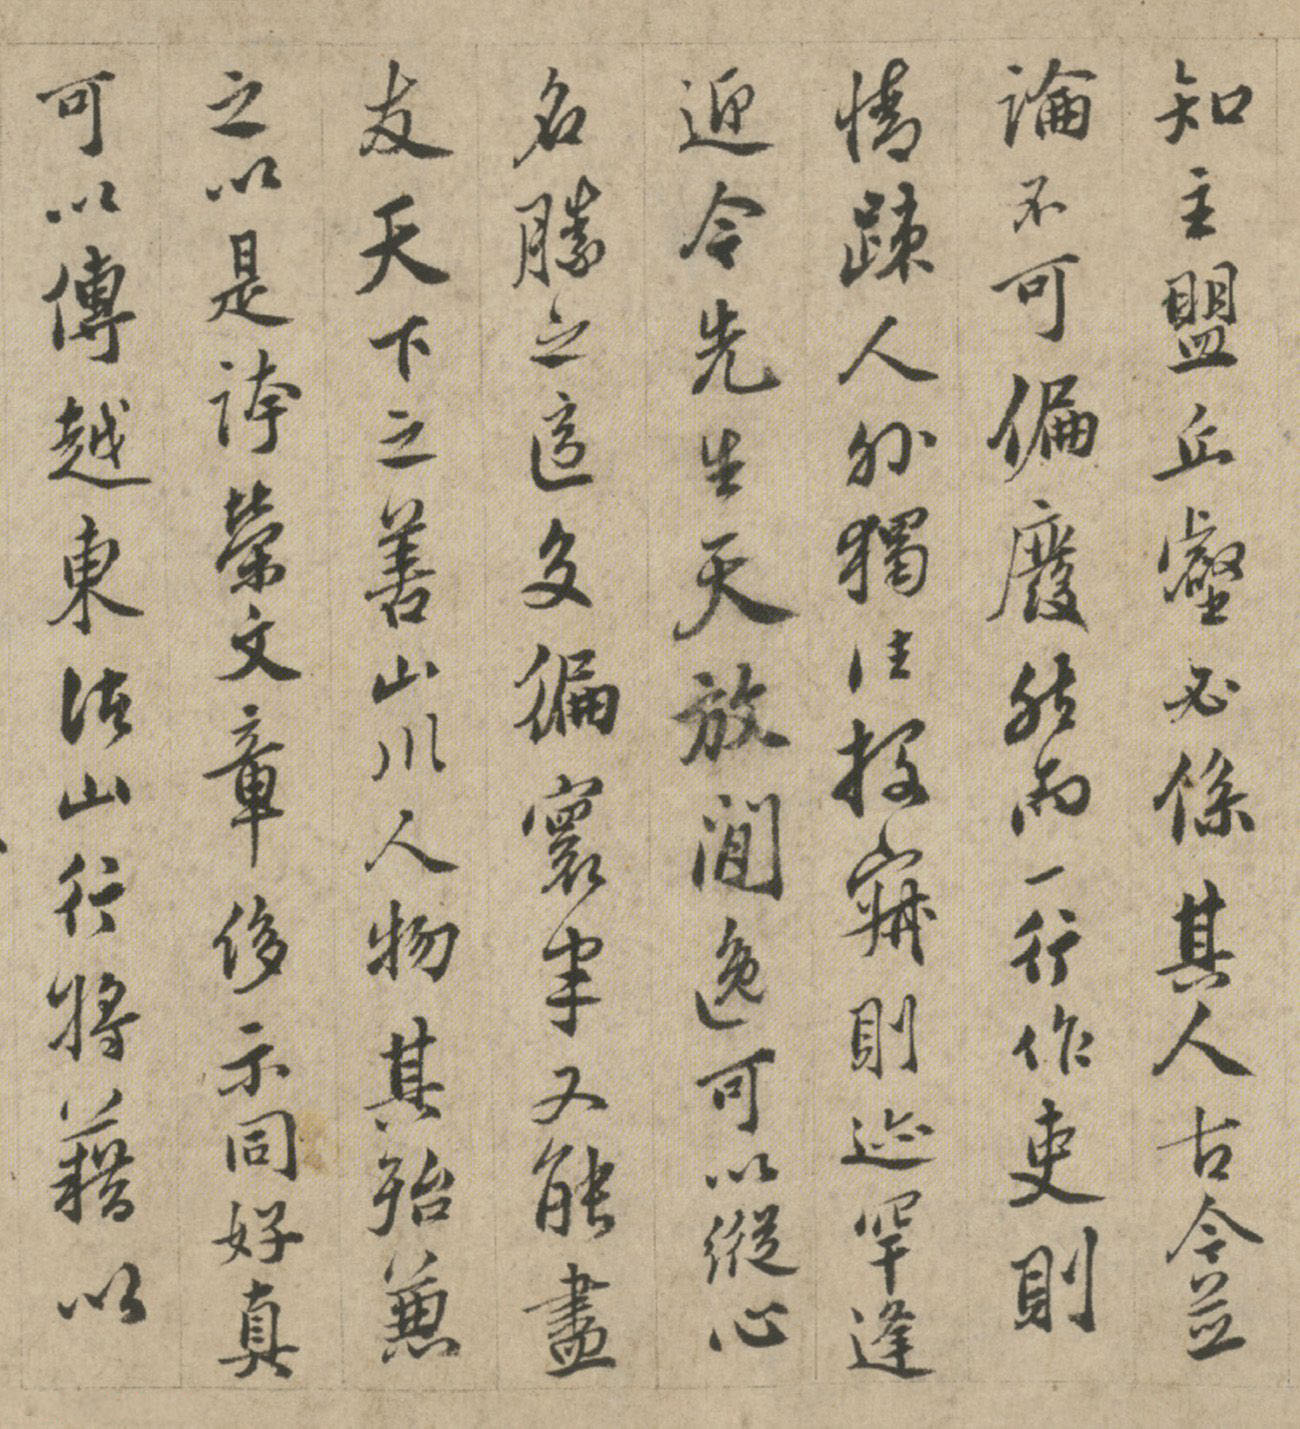 知主盟丘壑必係其人古今並
論不可偏廢然而一行作吏則
情踈人外獨往投寂則迹罕逢
迎今先生天放閒逸可以縱心
名勝之區多徧寰宇又能盡
友天下之善山川人物其殆兼
之以是誇榮文章侈示同好真
可以傳越東諸山行將藉以